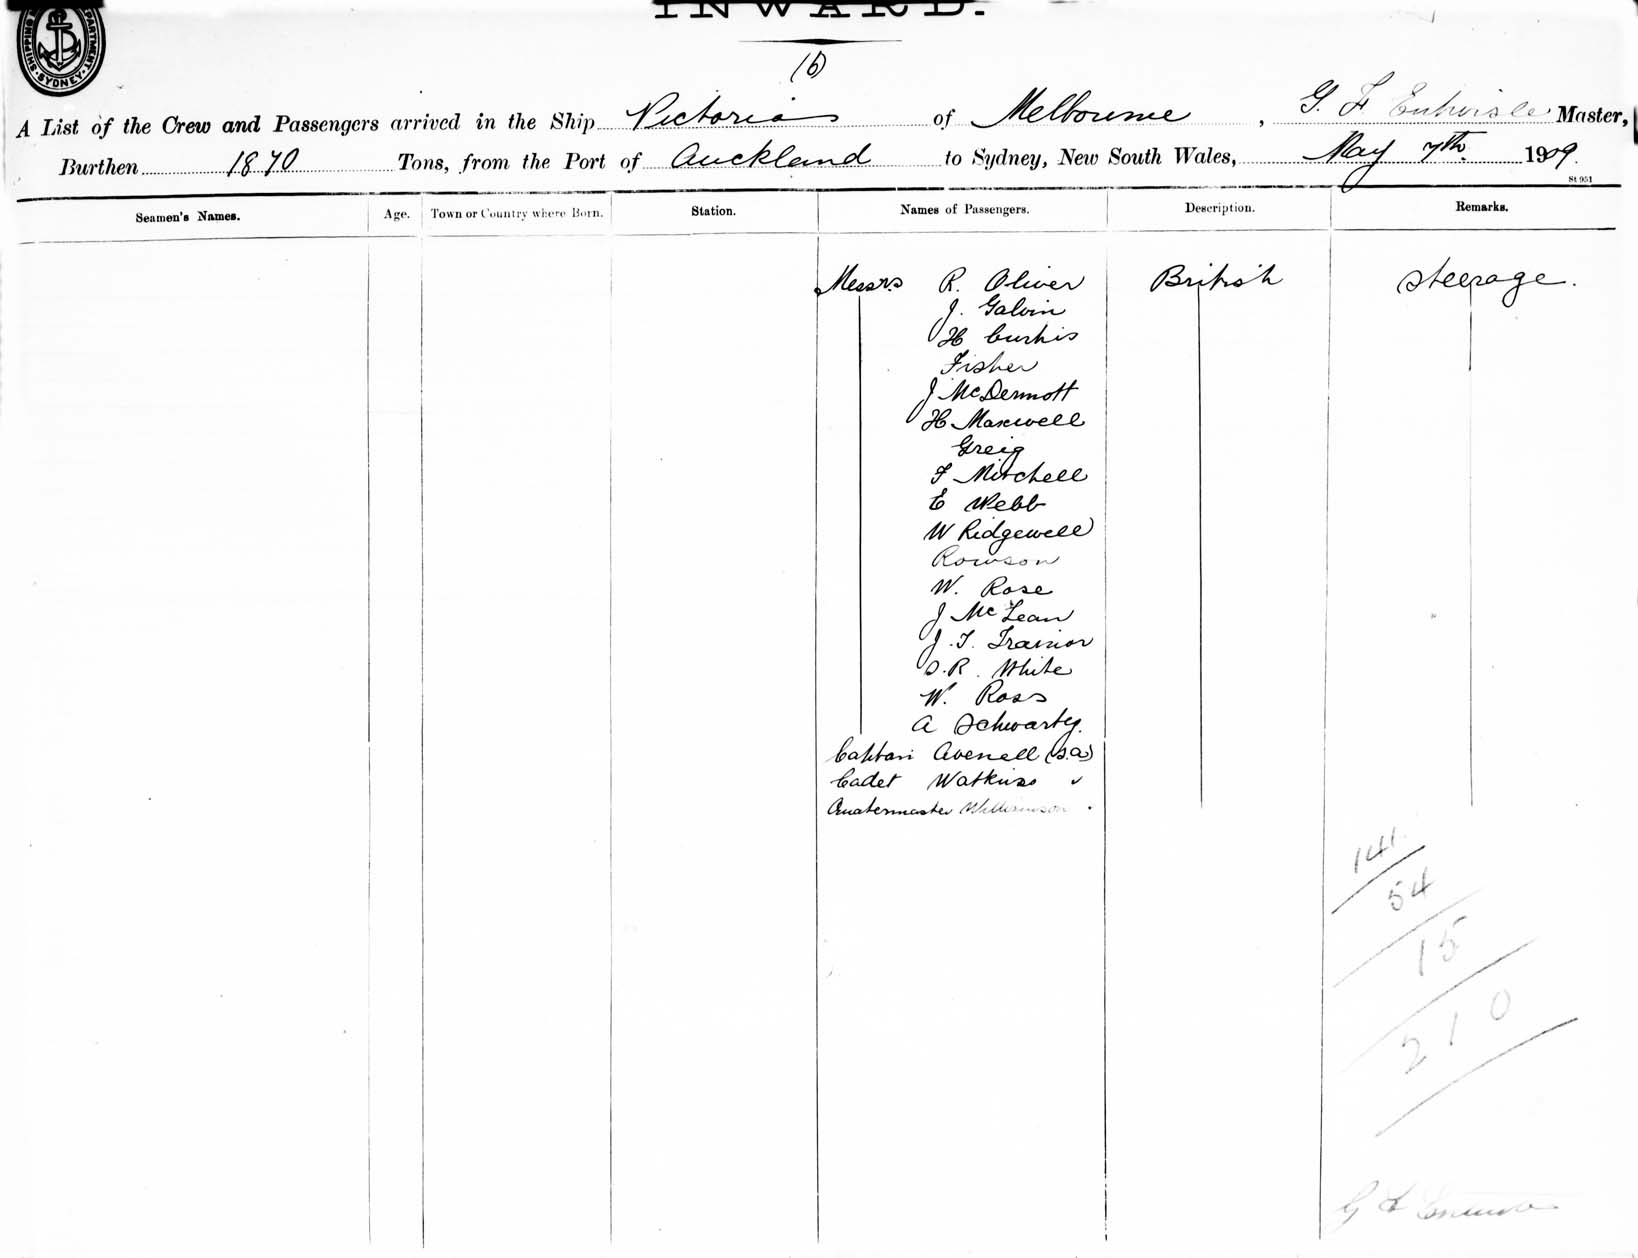 INWARD.
SHIPPING DEPARTMENT. SYDNEY.
(6)
A List of the Crew and Passengers arrived in the Ship Victoria of Melbourne, G. F Entwisle Master,
Burthen 1870 Tons, from the Port of Auckland to Sydney, New South Wales, May 7th. 1909.
St 951
Seamen's Names. Age. Town or Country where Born. Station. Names of Passengers. Description. Remarks.
Messrs R. Oliver British steerage.
J. Galvin
H Curtis
Fisher
J McDermott
H Maxwell
Greig
F Mitchell
E Webb
W Ridgewell
Rowson
W. Rose
J McLean
J. T. Trainor
S. R. White
W. Ross
A Schwartz.
Captain Avenell (S.A)
Cadet Watkins "
Quatermaster Williamson "
141
54
15
210
G F